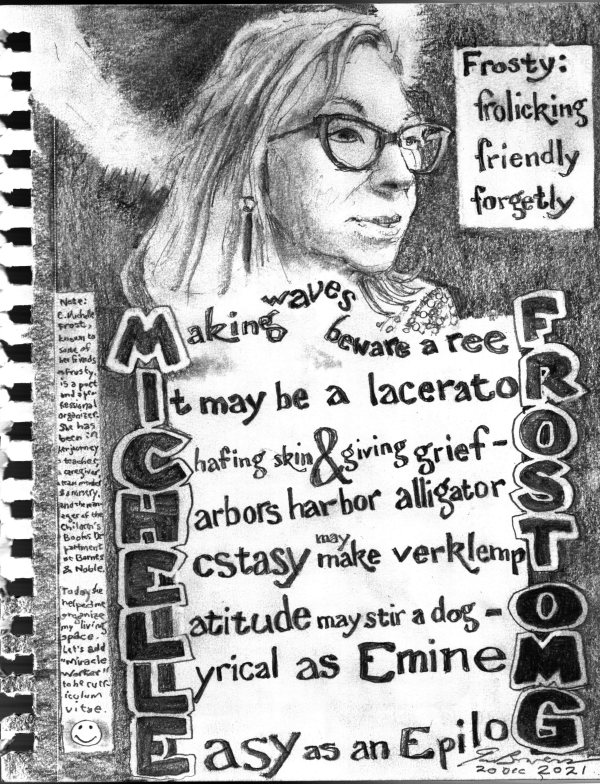 Frosty:
frolicking
friendly
forgetly
Making waves
beware a reeF
It may be a laceratoR
Chafing skin & giving grief-O
Harbors harbor alligatorS
Ecstasy may make verklempT
Latitude may stir a dog-O
Lyrical as EmineM
Easy as an EpiloG
Note:
C. Michelle
Frost,
known to
some of
her friends
as Frosty,
is a poet
and a pro-
fessional
organizer.
She has
been in
her journey
a teacher,
a caregiver,
a team
ministry,
and the man-
ager of the
Children's
Books De-
partment
at Barnes
& Noble.
Today she
helped me
organize
my "living
space.
Let's add
"miracle
worker"
to her curr-
iculum
vitae.
20 Dec 2021